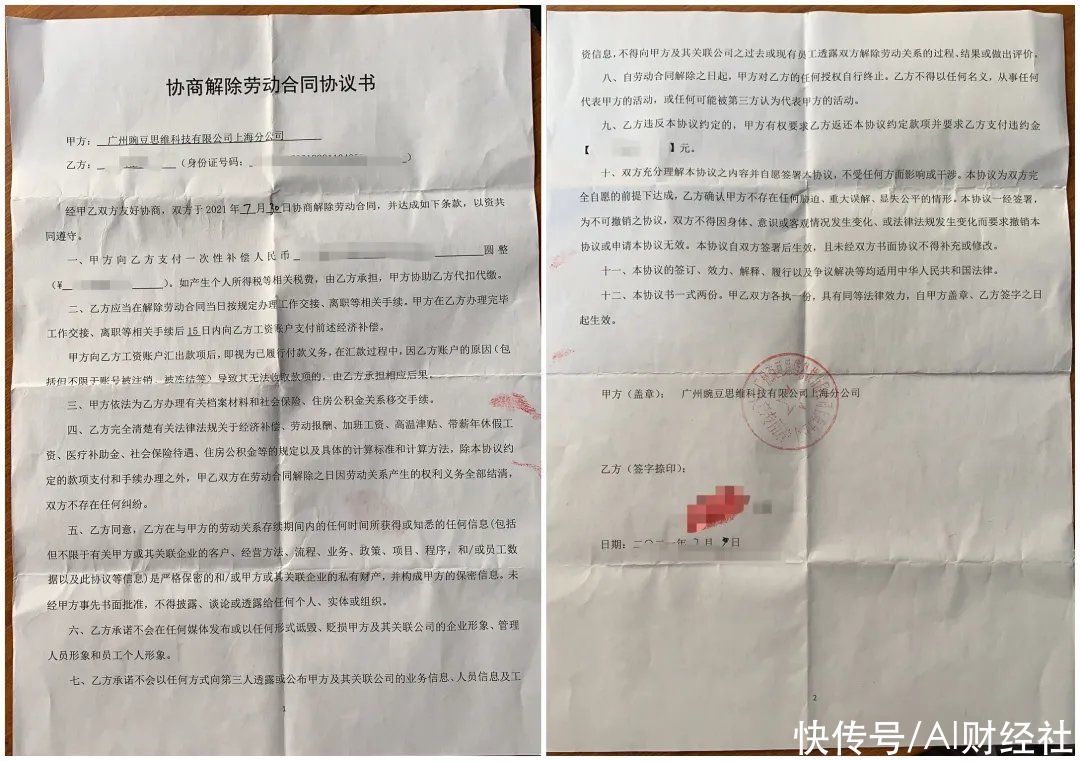 协商解除劳动合同协议书
甲方：广州豌豆思维科技有限公司上海分公司
乙方：（身份证号码：）
经甲乙双方友好协商，双方于2021年7月30日协商解除劳动合同，并达成如下条款，以资共
同遵守。
一、甲方向乙方支付一次性补偿人民币圆整
（¥）。如产生个人所得税等相关税费，由乙方承担，甲方协助乙方代扣代缴。
二、乙方应当在解除劳动合同当日按规定办理工作交接、离职等相关手续。甲方在乙方办理完毕
工作交接、离职等相关手续后15日内向乙方工资账户支付前述经济补偿。
甲方向乙方工资账户汇出款项后，即视为已履行付款义务，在汇款过程中，因乙方账户的原因（包
括但不限于账号被注销、被冻结等）导致其无法收取款项的，由乙方承担相应后果。
三、甲方依法为乙方办理有关档案材料和社会保险、住房公积金关系移交手续。
四、乙方完全清楚有关法律法规关于经济补偿、劳动报酬、加班工资、高温津贴、带薪年休假工
资、医疗补助金、社会保险待遇、住房公积金等的规定以及具体的计算标准和计算方法，除本协议约
定的款项支付和手续办理之外，甲乙双方在劳动合同解除之日因劳动关系产生的权利义务全部结清，
双方不存在任何纠纷。
五、乙方同意，乙方在与甲方的劳动关系存续期间内的任何时间所获得或知悉的任何信息(包括
但不限于有关甲方或其关联企业的客户、经营方法、流程、业务、政策、项目、程序，和/或员工数
据以及此协议等信息)是严格保密的和/或甲方或其关联企业的私有财产，并构成甲方的保密信息。未
经甲方事先书面批准，不得披露、谈论或透露给任何个人、实体或组织。
六、乙方承诺不会在任何媒体发布或以任何形式诋毁、贬损甲方及其关联公司的企业形象、管理
人员形象和员工个人形象。
七、乙方承诺不会以任何方式向第三人透露或公布甲方及其关联公司的业务信息、人员信息及工
1
资信息，不得向甲方及其关联公司之过去或现有员工透露双方解除劳动关系的过程、结果或做出评价。
八、自劳动合同解除之日起，甲方对乙方的任何授权自行终止。乙方不得以任何名义，从事任何
代表甲方的活动，或任何可能被第三方认为代表甲方的活动。
九、乙方违反本协议约定的，甲方有权要求乙方返还本协议约定款项并要求乙方支付违约金
【】元。
十、双方充分理解本协议之内容并自愿签署本协议，不受任何方面影响或干涉。本协议为双方完
全自愿的前提下达成，乙方确认甲方不存在任何胁迫、重大误解、显失公平的情形。本协议一经签署，
为不可撤销之协议，双方不得因身体、意识或客观情况发生变化、或法律法规发生变化而要求撤销本
协议或申请本协议无效。本协议自双方签署后生效，且未经双方书面协议不得补充或修改。
十一、本协议的签订、效力、解释、履行以及争议解决等均适用中华人民共和国法律。
十二、本协议书一式两份。甲乙双方各执一份，具有同等法律效力，自甲方盖章、乙方签字之日
起生效。
甲方（盖章）：广州豌豆思维科技有限公司上海分公司
乙方（签字捺印）：
日期：二〇二一年月日
2
快传号/AI财经社